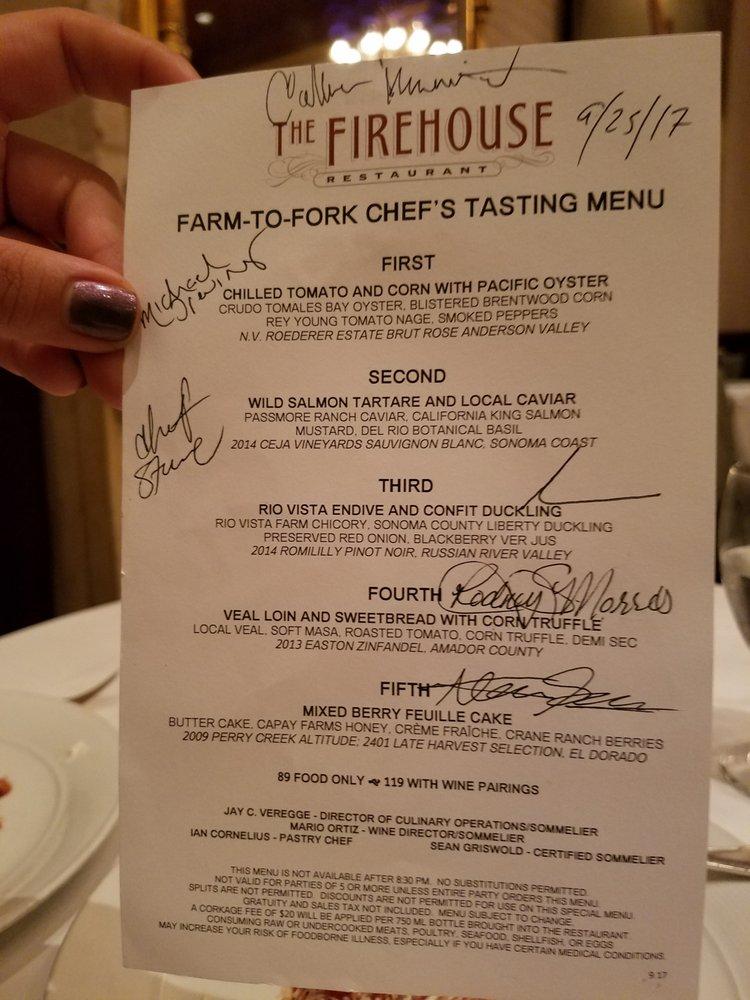 THE FIREHOUSE
9/25/17
RESTAURANT
FARM-TO-FORK CHEF'S TASTING MENU
Michael
FIRST
CHILLED TOMATO AND CORN WITH PACIFIC OYSTER
CRUDO TOMALES BAY OYSTER, BLISTERED BRENTWOOD CORN
REY YOUNG TOMATO NAGE, SMOKED PEPPERS
N.V. ROEDERER ESTATE BRUT ROSE ANDERSON VALLEY
SECOND
WILD SALMON TARTARE AND LOCAL CAVIAR
PASSMORE RANCH CAVIAR, CALIFORNIA KING SALMON
MUSTARD, DEL RIO BOTANICAL BASIL
2014 CEJA VINEYARDS SAUVIGNON BLANC, SONOMA COAST
Chef
Steve
THIRD
RIO VISTA ENDIVE AND CONFIT DUCKLING
RIO VISTA FARM CHICORY, SONOMA COUNTY LIBERTY DUCKLING
PRESERVED RED ONION, BLACKBERRY VER JUS
2014 ROMILILLY PINOT NOIR, RUSSIAN RIVER VALLEY
FOURTH Rodney
VEAL LOIN AND SWEETBREAD WITH CORN TRUFFLE
LOCAL VEAL, SOFT MASA, ROASTED TOMATO, CORN TRUFFLE, DEMI SEC
2013 EASTON ZINFANDEL, AMADOR COUNTY
FIFTH
MIXED BERRY FEUILLE CAKE
BUTTER CAKE, CAPAY FARMS HONEY, CRÈME FRAÎCHE, CRANE RANCH BERRIES
2009 PERRY CREEK ALTITUDE: 2401 LATE HARVEST SELECTION, EL DORADO
89 FOOD ONLY ~ 119 WITH WINE PAIRINGS
JAY C. VEREGGE - DIRECTOR OF CULINARY OPERATIONS/SOMMELIER
MARIO ORTIZ - WINE DIRECTOR/SOMMELIER
IAN CORNELIUS - PASTRY CHEF SEAN GRISWOLD - CERTIFIED SOMMELIER
THIS MENU IS NOT AVAILABLE AFTER 8:30 PM. NO SUBSTITUTIONS PERMITTED.
NOT VALID FOR PARTIES OF 5 OR MORE UNLESS ENTIRE PARTY ORDERS THIS MENU.
SPLITS ARE NOT PERMITTED. DISCOUNTS ARE NOT PERMITTED FOR USE ON THIS SPECIAL MENU.
GRATUITY AND SALES TAX NOT INCLUDED. MENU SUBJECT TO CHANGE.
A CORKAGE FEE OF $20 WILL BE APPLIED PER 750 ML BOTTLE BROUGHT INTO THE RESTAURANT.
CONSUMING RAW OR UNDERCOOKED MEATS, POULTRY, SEAFOOD, SHELLFISH, OR EGGS
MAY INCREASE YOUR RISK OF FOODBORNE ILLNESS, ESPECIALLY IF YOU HAVE CERTAIN MEDICAL CONDITIONS.
9.17